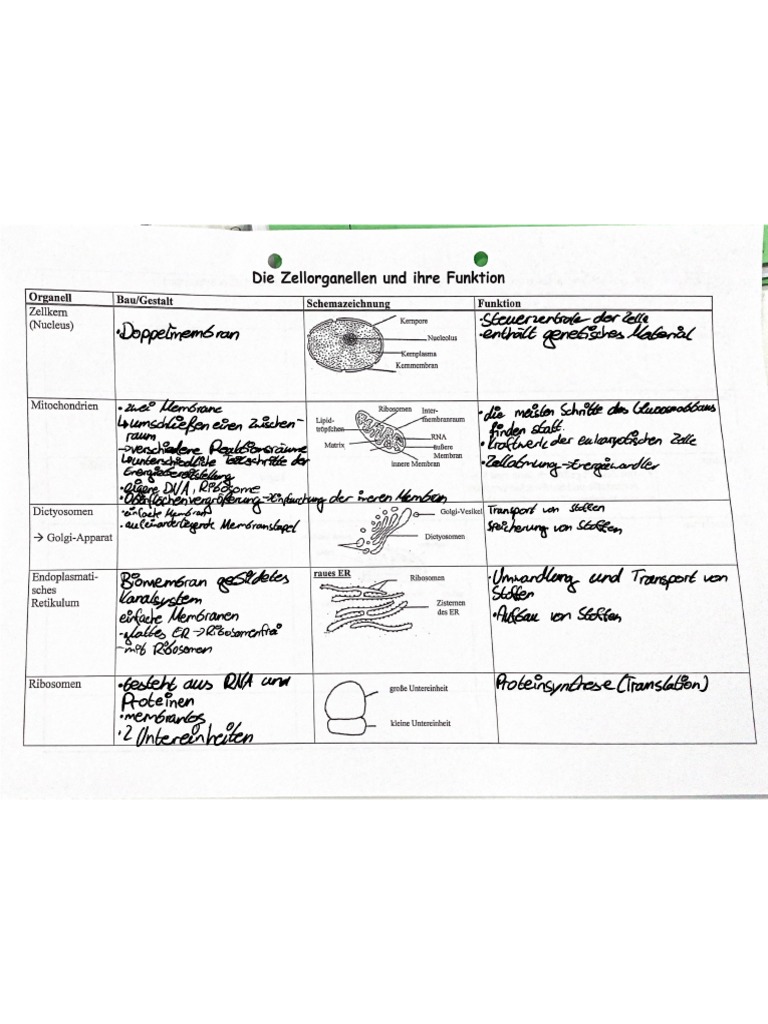 Die Zellorganellen und ihre Funktion
Organell
Bau/Gestalt
Schemazeichnung
Funktion
Zellkern
(Nucleus)
•Doppelmembran
Kernpore
Nucleolus
Kernplasma
Kernmembran
•Steuerzentrale der Zelle
•enthält genetisches Material
Mitochondrien
• zwei Membrane
↳umschließen einen Zwischen-
raum
→verschiedene Reaktionsräume
↳unterschiedliche Teilschritte der
Energiebereitstellung
•eigene DNA, Ribosome
•Oberflächenvergrößerung→Einbuchtung der inneren Membran
Ribosomen
Inter-
membranraum
Lipid-
tröpfchen
Matrix
RNA
äußere
Membran
innere Membran
•die meisten Schritte des Glucoseabbaus
finden statt.
•Kraftwerk der eukaryotischen Zelle
•Zellatmung→Energiewandler
Dictyosomen
→ Golgi-Apparat
•einfache Membran
•aufeinanderliegende Membranstapel
Golgi-Vesikel
Dictyosomen
Transport von Stoffen
Speicherung von Stoffen
Endoplasmati-
sches
Retikulum
Biomembran gebildetes
Kanalsystem
einfache Membranen
-glattes ER →Ribosomenfrei
-mit Ribosomen
raues ER
Ribosomen
Zisternen
des ER
•Umwandlung und Transport von
Stoffen
•Aufbau von Stoffen
Ribosomen
•besteht aus RNA und
Proteinen
•membranlos
•2 Untereinheiten
große Untereinheit
kleine Untereinheit
Proteinsynthese (Translation)